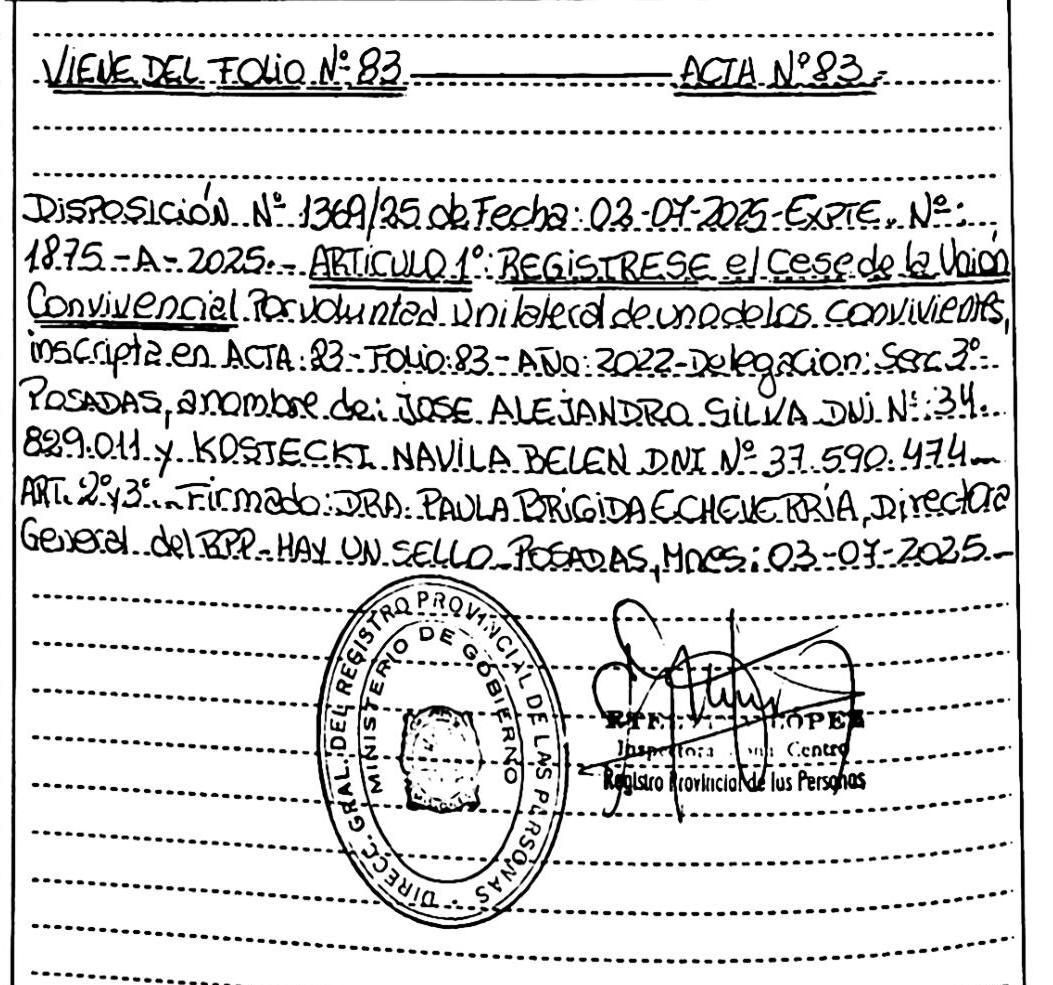 VIENE DEL FOLIO Nº 83 ACTA Nº 83.-
DISPOSICIÓN Nº 1369/25 de Fecha: 03-07-2025-EXPTE. Nº:
1875.-A-2025.- ARTÍCULO 1º: REGISTRESE el Cese de la Unión
Convivencial Por voluntad unilateral de uno de los convivientes,
inscripta en ACTA: 83-FOLIO: 83-AÑO: 2022-Delegacion: Secc 3º-
POSADAS, a nombre de: JOSE ALEJANDRO SILVA DNI Nº: 34.
829.011 y KOSTECKI NAVILA BELEN DNI Nº 37.590.474-
ART. 2º y 3º.- Firmado: DRA. PAULA BRIGIDA ECHEVERRÍA, Directora
General del RPP-HAY UN SELLO-POSADAS, Mnes: 03-07-2025.-
DIRECC. GRAL. DEL REGISTRO PROVINCIAL DE LAS PERSONAS
MINISTERIO DE GOBIERNO
LÓPEZ
Inspectora Centro
Registro Provincial de las Personas